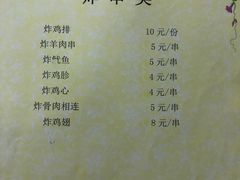 炸串类
炸鸡排 10 元/份
炸羊肉串 5 元/串
炸气鱼 5 元/串
炸鸡胗 4 元/串
炸鸡心 4 元/串
炸骨肉相连 5 元/串
炸鸡翅 8 元/串